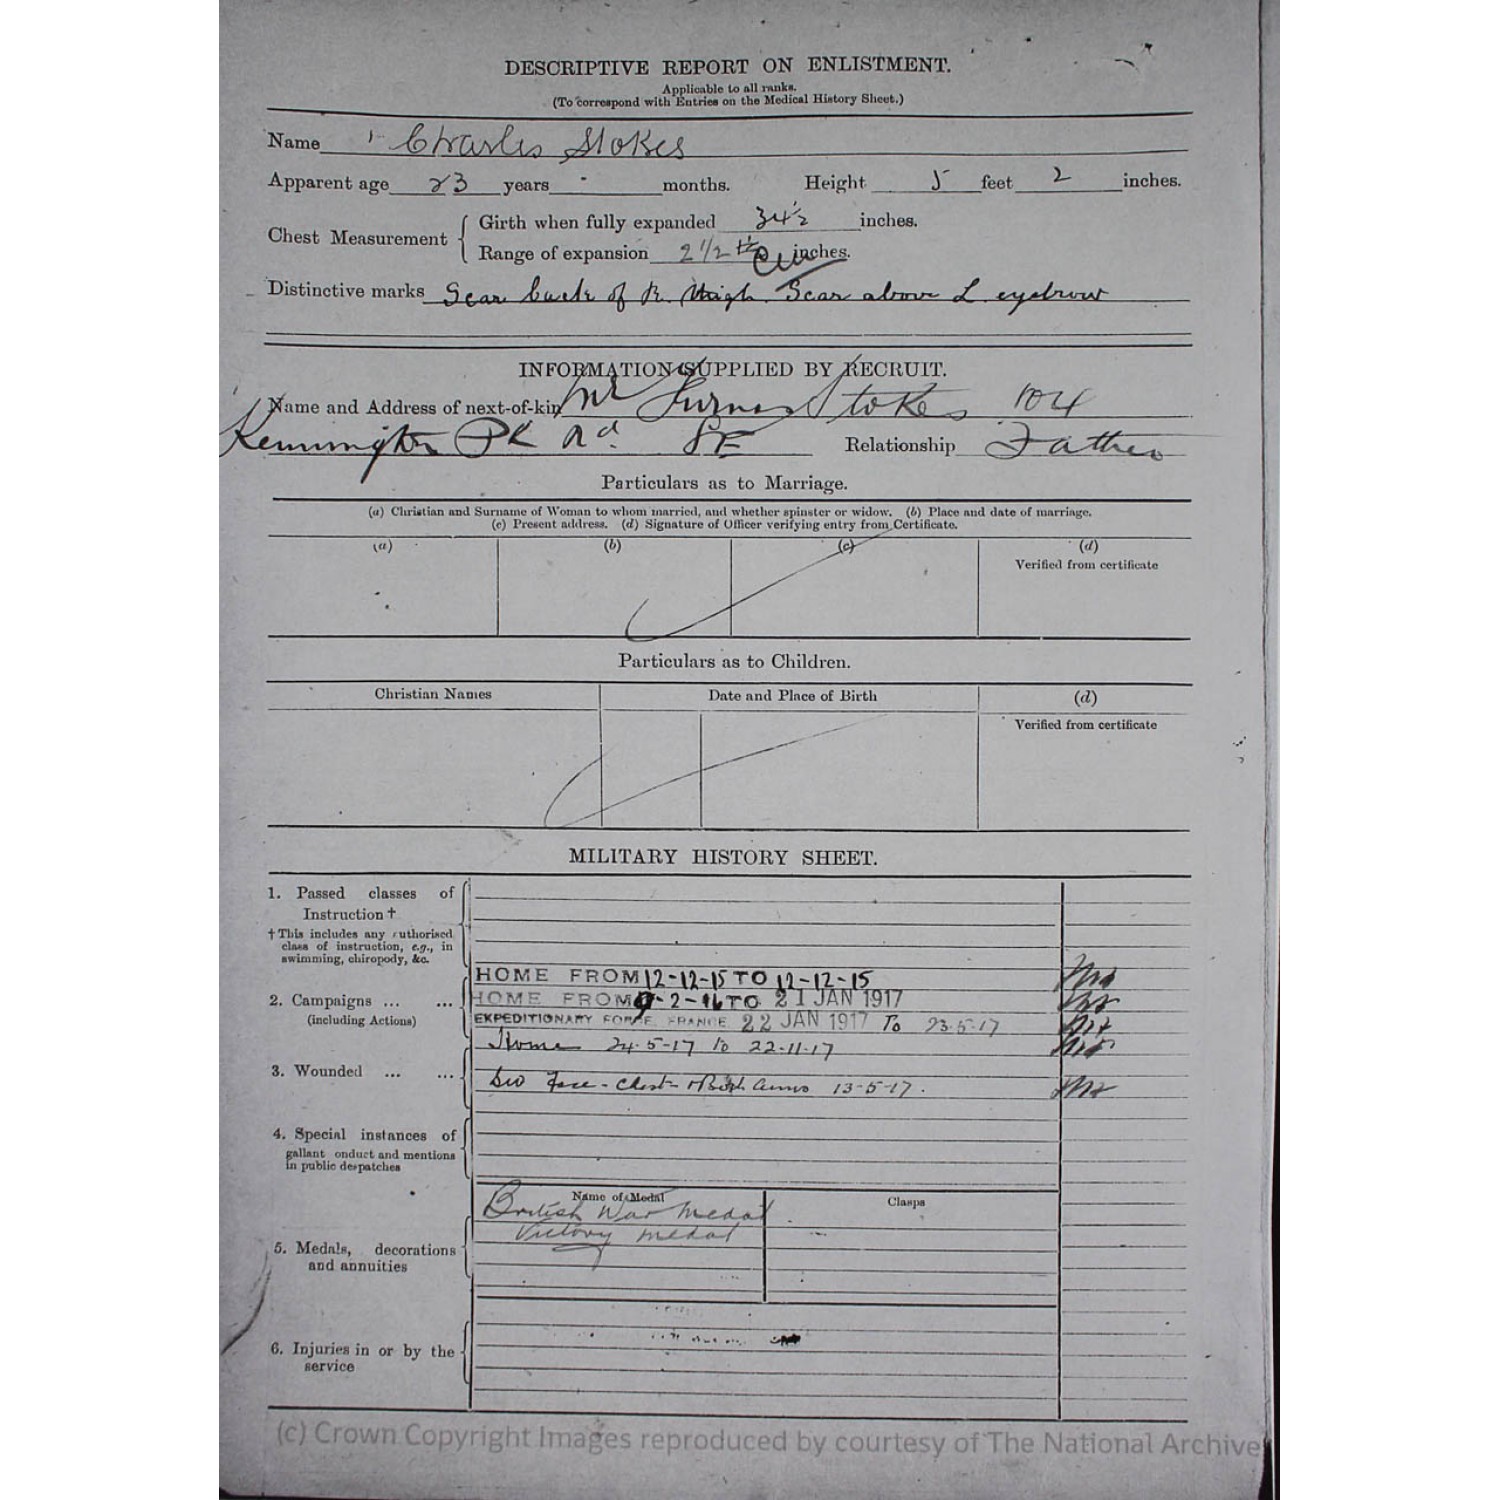 DESCRIPTIVE REPORT ON ENLISTMENT.
Applicable to all ranks.
(To correspond with Entries on the Medical History Sheet.)
Name Charles Stokes
Apparent age 23 years - months. Height 5 feet 2 inches.
Chest Measurement { Girth when fully expanded 34½ inches.
Range of expansion 2 1/2 inches.
Distinctive marks Scar back of R. thigh. Scar above L eyebrow
INFORMATION SUPPLIED BY RECRUIT.
Name and Address of next-of-kin Mr Stokes 104
Kennington Pk Rd SE Relationship Father
Particulars as to Marriage.
(a) Christian and Surname of Woman to whom married, and whether spinster or widow. (b) Place and date of marriage.
(c) Present address. (d) Signature of Officer verifying entry from Certificate.
(a) (b) (c) (d)
Verified from certificate
Particulars as to Children.
Christian Names Date and Place of Birth (d)
Verified from certificate
MILITARY HISTORY SHEET.
1. Passed classes of
Instruction †
† This includes any authorised
class of instruction, e.g., in
swimming, chiropody, &c.
HOME FROM 12-12-15 TO 12-12-15
2. Campaigns ... ... HOME FROM 9-2-16 TO 21 JAN 1917
(including Actions) EXPEDITIONARY FORCE FRANCE 22 JAN 1917 To 23-5-17
Home 24-5-17 to 22-11-17
3. Wounded ... ... Face - Chest + Both arms 13-5-17.
4. Special instances of
gallant onduct and mentions
in public despatches
Name of Medal Clasps
British War Medal
Victory Medal
5. Medals, decorations
and annuities
6. Injuries in or by the
service
(c) Crown Copyright Images reproduced by courtesy of The National Archive